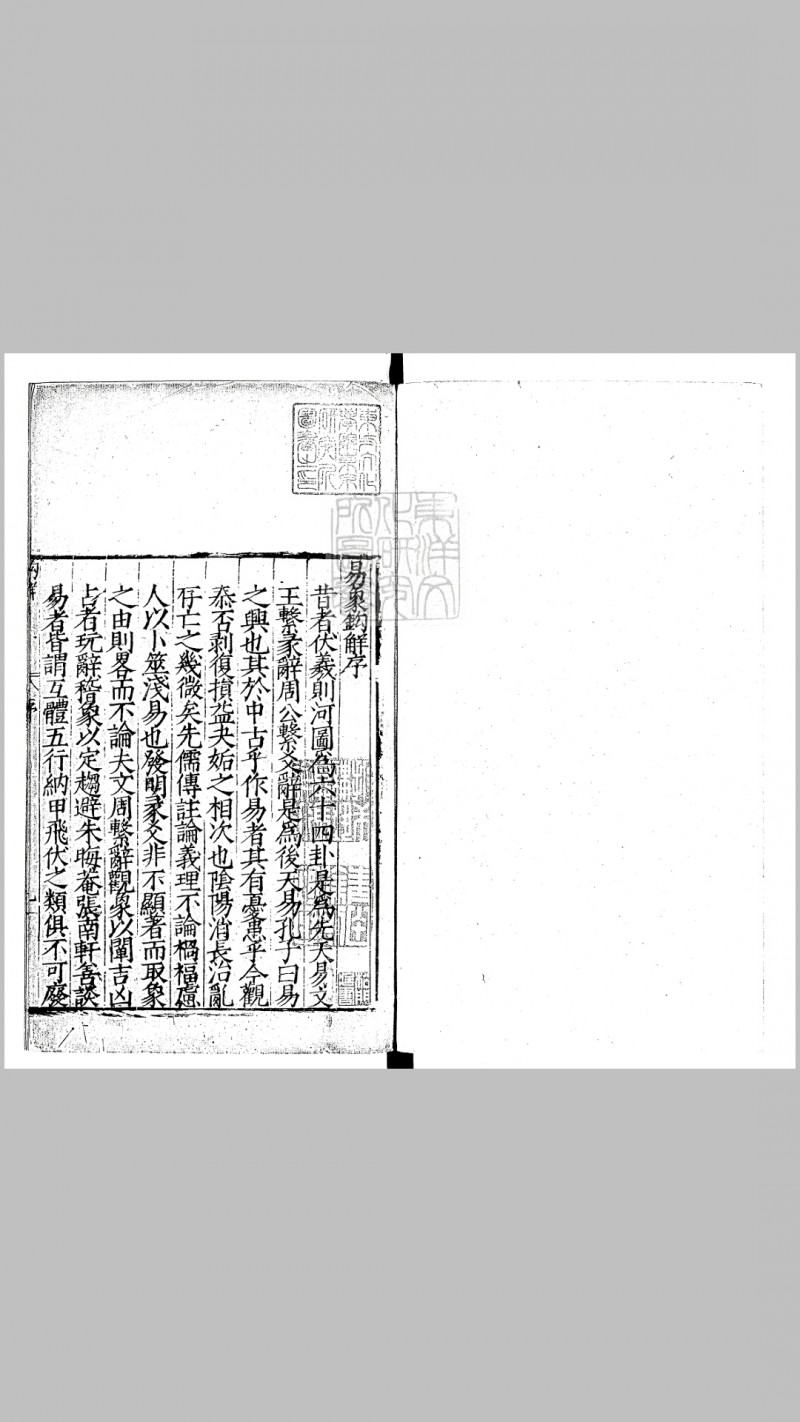 易象鈎解序
昔者伏羲則河圖為六十四卦是為先天易文
王繫彖辭周公繫爻辭是為後天易孔子曰易
之興也其於中古乎作易者其有憂患乎今觀
泰否剥復損益夬姤之相次也陰陽消長治亂
存亡之幾微矣先儒傳註論義理不論禍福慮
人以卜筮淺易也發明彖爻非不顯著而取象
之由則畧而不論夫文周繫辭觀象以闡吉凶
占者玩辭稽象以定趨避朱晦菴張南軒善談
易者皆謂互體五行納甲飛伏之類俱不可廢
序